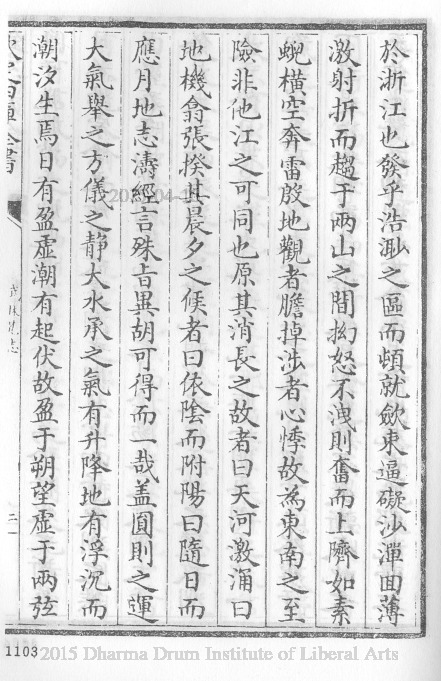 於浙江也發乎浩渺之區而頓就歛束逼礙沙潬囬薄
激射折而趨于兩山之間拗怒不洩則奮而上隮如素
蜺橫空奔雷殷地觀者膽掉渉者心悸故為東南之至
險非他江之可同也原其消長之故者曰天河激涌曰
地機翕張揆其晨夕之候者曰依隂而附陽曰隨日而
應月地志濤經言殊㫖異胡可得而一哉盖圎則之運
大氣舉之方儀之靜大水承之氣有升降地有浮沉而
潮汐生焉日有盈虛潮有起伏故盈于朔望虛于兩弦
欽定四庫全書
武林舊志
1103 2015 Dharma Drum Institute of Liberal Arts